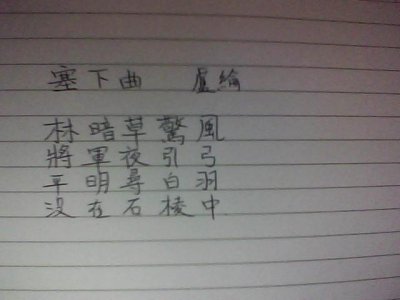 塞下曲 盧綸
林暗草驚風
將軍夜引弓
平明尋白羽
沒在石棱中